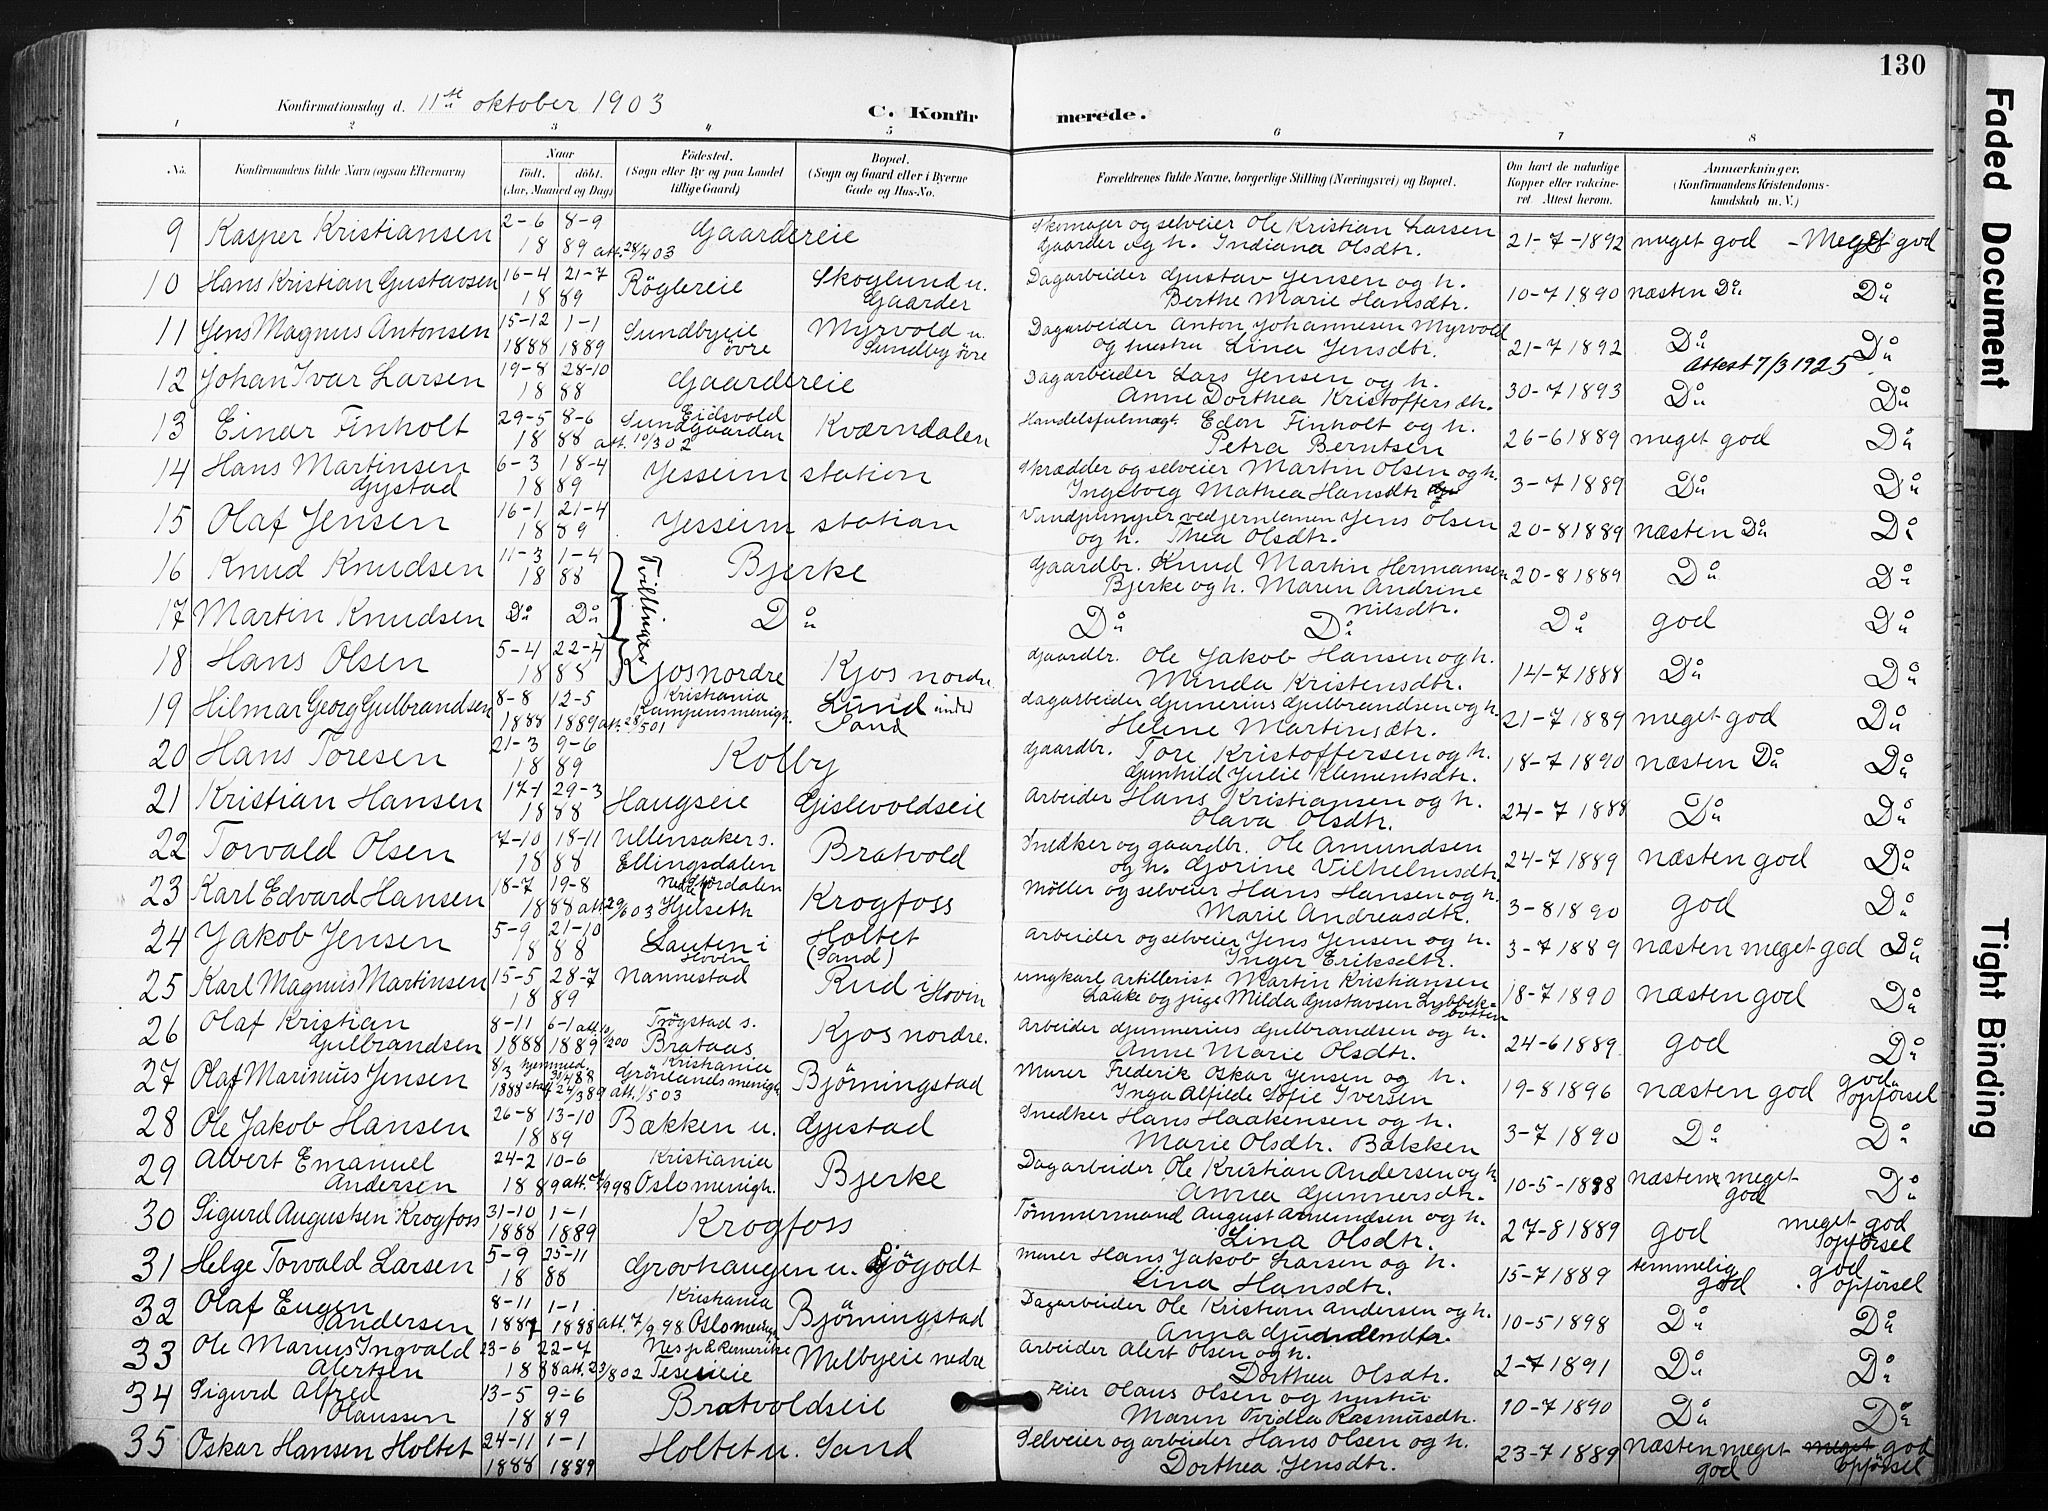 130
Konfirmationsdag d. 11te oktober 1903
C. Konfirmerede.
1 2 3 4 5 6 7 8
No. Konfirmandens fulde Navn (ogsaa Efternavn) Naar födt. döbt. (Aar, Maaned og Dag) Födested. (Sogn eller By og paa Landet tillige Gaard) Bopæl. (Sogn og Gaard eller i Byerne Gade og Hus-No. Forældrenes fulde Navne, borgerlige Stilling (Næringsvei) og Bopæl. Om havt de naturlige Kopper eller vaccineret Attest herom. Anmærkninger. (Konfirmandens Kristendomskundskab m. V.)
9 Kasper Kristiansen 2-6 8-9 1889 att. 28/4 03 Gaardereie Skomager og selveier Ole Kristian Larsen
Gaarder og h. Indiana Olsdtr. 21-7-1892 meget god - Meget god
10 Hans Kristian Gustavsen 16-4 21-7 1889 Röglereie Skoglund u. Gaarder Dagarbeider Gustav Jensen og h.
Berthe Marie Hansdtr. 10-7 1890 næsten Do Do
11 Jens Magnus Antonsen 15-12 1888 1-1 1889 Sundbyeie övre Myrvold u. Sundby övre Dagarbeider Anton Johannesen Myrvold
og hustru Lina Jensdtr. 21-7 1892 Do Do
Attest 7/3 1925
12 Johan Ivar Larsen 19-8 28-10 1888 Gaardereie Dagarbeider Lars Jensen og h.
Anne Dorthea Kristoffersdtr. 30-7 1893 Do Do
13 Einar Finholt 29-5 8-6 1888 att. 19/3 02 Eidsvold Sundgaarden Kværndalen Handelsfulmægt. Edon Finholt og h.
Petra Berntsen 26-6 1889 meget god Do
14 Hans Martinsen Gystad 6-3 18-4 1889 Jesseim station Skrædder og selveier Martin Olsen og h.
Ingeborg Mathea Hansdtr 3-7 1889 Do Do
15 Olaf Jensen 16-1 21-4 1889 Jesseim station Vandpumper ved jernbanen Jens Olsen
og h. Thea Olsdtr. 20-8 1889 næsten Do Do
16 Knud Knudsen 11-3 1-4 1888 Tvillinger Bjerke Gaardbr. Knud Martin Hermansen
Bjerke og h. Maren Andrine Nilsdtr. 20-8 1889 Do Do
17 Martin Knudsen Do Do Do Do Do Do god Do
18 Hans Olsen 5-4 22-4 1888 Kjos nordre Kjos nordre. Gaardbr. Ole Jakob Hansen og h.
Minda Kristensdtr. 14-7 1888 Do Do
19 Hilmar Georg Gulbrandsen 8-8 1888 12-5 1889 att. 28/5 01 Kristiania Kampensmenigh. Lund under Sand dagarbeider Gunerius Gulbrandsen og h.
Helene Martinsdtr. 21-7 1889 meget god Do
20 Hans Toresen 21-3 9-6 1889 Kolby Gaardbr. Tore Kristoffersen og h.
Gunhild Julie Klementsdtr. 18-7 1890 næsten Do Do
21 Kristian Hansen 17-1 29-3 1888 Haugseie Gislevoldseie Arbeider Hans Kristiansen og h.
Olava Olsdtr. 24-7 1888 Do Do
22 Torvald Olsen 7-10 18-11 1888 Ullensaker s. Ellingsdalen Bratvold Snedker og gaardbr. Ole Amundsen
og h. Gjorine Vilhelmsdtr 24-7 1889 næsten god Do
23 Karl Edvard Hansen 18-7 19-8 1888 att. 29/6 03 Hjelseth Krogfoss Möller og selveier Hans Hansen og h.
Marie Andreasdtr. 3-8 1890 god Do
24 Jakob Jensen 5-9 21-10 1888 Lauten i Hoven Holtet (Sand) Arbeider og selveier Jens Jensen og h.
Inger Eriksdtr. 3-7 1889 næsten meget god Do
25 Karl Magnus Martinsen 15-5 28-7 1889 Nannestad Rud i Hovin ungkarl artillerist Martin Kristiansen
Laake og pige Milda Gustavsen Lybbekbotten 18-7 1890 næsten god Do
26 Olaf Kristian Gulbrandsen 8-11 1888 6-1 1889 Trögstad s. Brataas Kjos nordre. Arbeider Gunnerius Gulbrandsen og h.
Anne Marie Olsdtr. 24-6 1889 god Do
27 Olaf Marinius Jensen 8/3 1888 hjemmed. 24/3 89 Kristiania Grönlandsmenigh. Björningstad Murer Frederik Oskar Jensen og h.
Inga Alfilde Sofie Iversen 19-8 1896 næsten god god opförsel
28 Ole Jakob Hansen 26-8 13-10 1889 Bækken u. Gjestad Snedker Hans Haakensen og h.
Marie Olsdtr. Bækken 3-7 1890 Do Do
29 Albert Emanuel Andersen 24-2 10-6 1889 Kristiania Oslo menigh. Bjerke Dagarbeider Ole Kristian Andersen og h
Anna Gunnersdtr. 10-5-1898 næsten meget god Do
30 Sigurd Augustsen Krogfoss 31-10 1888 1-1 1889 Krogfoss Tömmermand August Amundsen og h.
Lina Olsdtr. 27-8 1889 god meget god opförsel
31 Helge Torvald Larsen 5-9 25-11 1888 Grovhaugen u. Gjögodt Murer Hans Jakob Larsen og h.
Lina Hansdtr. 15-7 1889 temmelig god god opförsel
32 Olaf Eugen Andersen 8-11 1887 1-1 1888 att. 7/9 98 Kristiania Oslo menigh. Björningstad Dagarbeider Ole Kristian Andersen og h.
Anna 10-5 1898 Do Do
33 Ole Marius Ingvald Alertsen 23-6 22-7 1888 att. 23/8 02 Nes p. Romerike Melbyeie nedre Arbeider Alert Olsen og h.
Dorthea Olsdtr. 2-7 1891 Do Do
34 Sigurd Alfred Olaussen 13-5 9-6 1889 Bratvoldseie Feier Olaus Olsen og hustru
Maren Ovidia Rasmusdtr. 10-7 1890 Do Do
35 Oskar Hansen Holtet 24-11 1888 1-1 1889 Holtet u. Sand Selveier og arbeider Hans Olsen og h.
Dorthea Jensdtr. 23-7 1889 næsten meget god meget god opförsel
Faded Document
Tight Binding